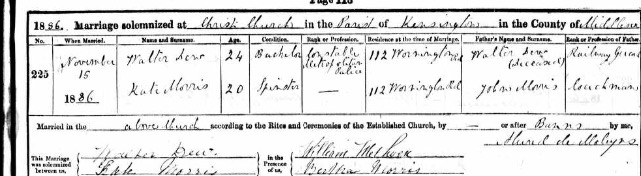 Page 113
1886. Marriage solemnized at Christ Church in the Parish of Kensington in the County of Middlesex
No. When Married. Name and Surname. Age. Condition. Rank or Profession. Residence at the time of Marriage. Father's Name and Surname. Rank or Profession of Father.
225 November 15 1886 Walter Dew 24 Bachelor Constable Metropolitan Police 112 Wornington Rd Walter Dew (deceased) Railway Guard
Kate Morris 20 Spinster — 112 Wornington Rd John Morris Coachman
Married in the above Church according to the Rites and Ceremonies of the Established Church, by — or after Banns by me,
This Marriage was solemnized between us, Walter Dew Kate Morris in the Presence of us, William Bertha Morris